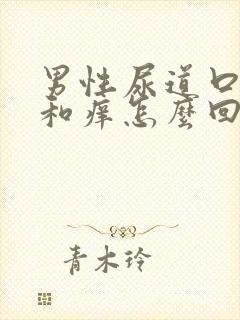 男性尿道口
和痒怎麼回
青木玲